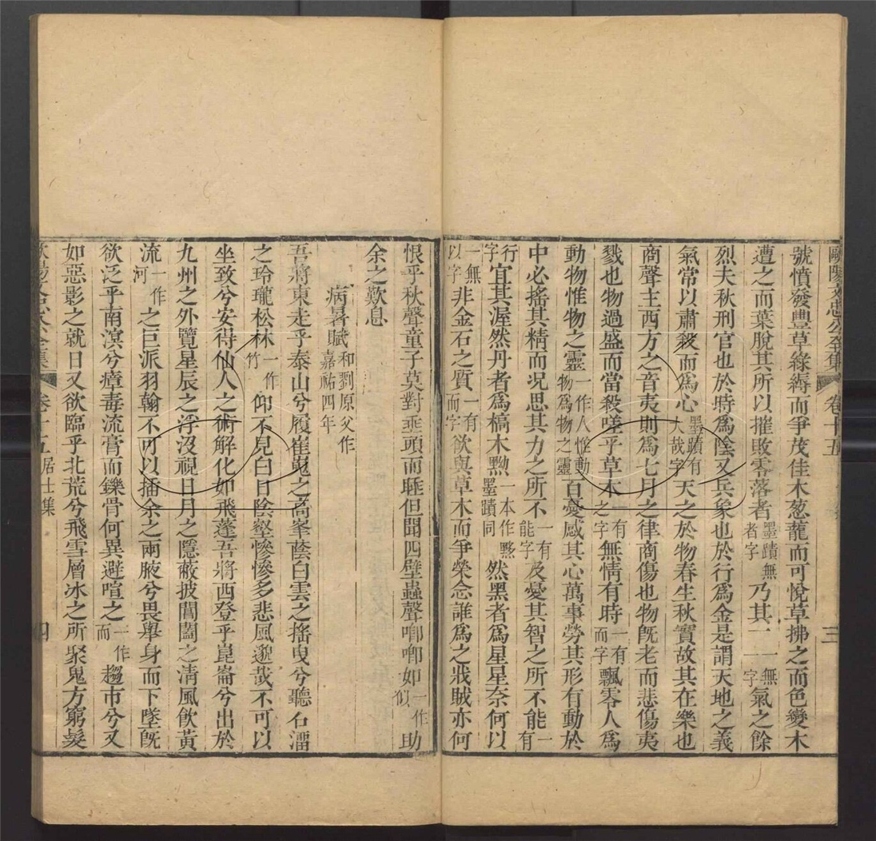 歐陽文忠公全集 卷十五 三
號憤發豐草綠縟而爭茂佳木葱蘢而可悅草拂之而色變木
遭之而葉脫其所以摧敗零落者墨蹟無者字乃其一一無字氣之餘
烈夫秋刑官也於時爲陰又兵象也於行爲金是謂天地之義
氣常以肅殺而爲心墨蹟有大哉字天之於物春生秋實故其在樂也
商聲主西方之音夷則爲七月之律商傷也物旣老而悲傷夷
戮也物過盛而當殺嗟乎草木一有之字無情有時一有而字飄零人爲
動物惟物之靈一作人惟動物爲物之靈百憂感其心萬事勞其形有動於
中必搖其精而况思其力之所不一有能字及憂其智之所不能一有
行字宜其渥然丹者爲槁木黝一本作黟墨蹟同然黑者爲星星奈何以
一無以字非金石之質一有而字欲與草木而爭榮念誰爲之戕賊亦何
恨乎秋聲童子莫對埀頭而睡但聞四壁蟲聲喞喞如一作似助
余之歎息
病暑賦和劉原父作嘉祐四年
吾將東走乎泰山兮履崔嵬之高峯蔭白雲之搖曳兮聽石溜
之玲瓏松林一作竹仰不見白日陰壑慘慘多悲風邈哉不可以
坐致兮安得仙人之術解化如飛蓬吾將西登乎崑崙兮出於
九州之外覽星辰之浮沒視日月之隱蔽披閶闔之清風飮黃
流一作河之巨派羽翰不可以插余之兩腋兮畏舉身而下墜旣
欲泛乎南溟兮瘴毒流膏而鑠骨何異避喧之一作而趨市兮又
如惡影之就日又欲臨乎北荒兮飛雪層冰之所聚鬼方窮髮
歐陽文忠公全集 卷十五 居士集 四